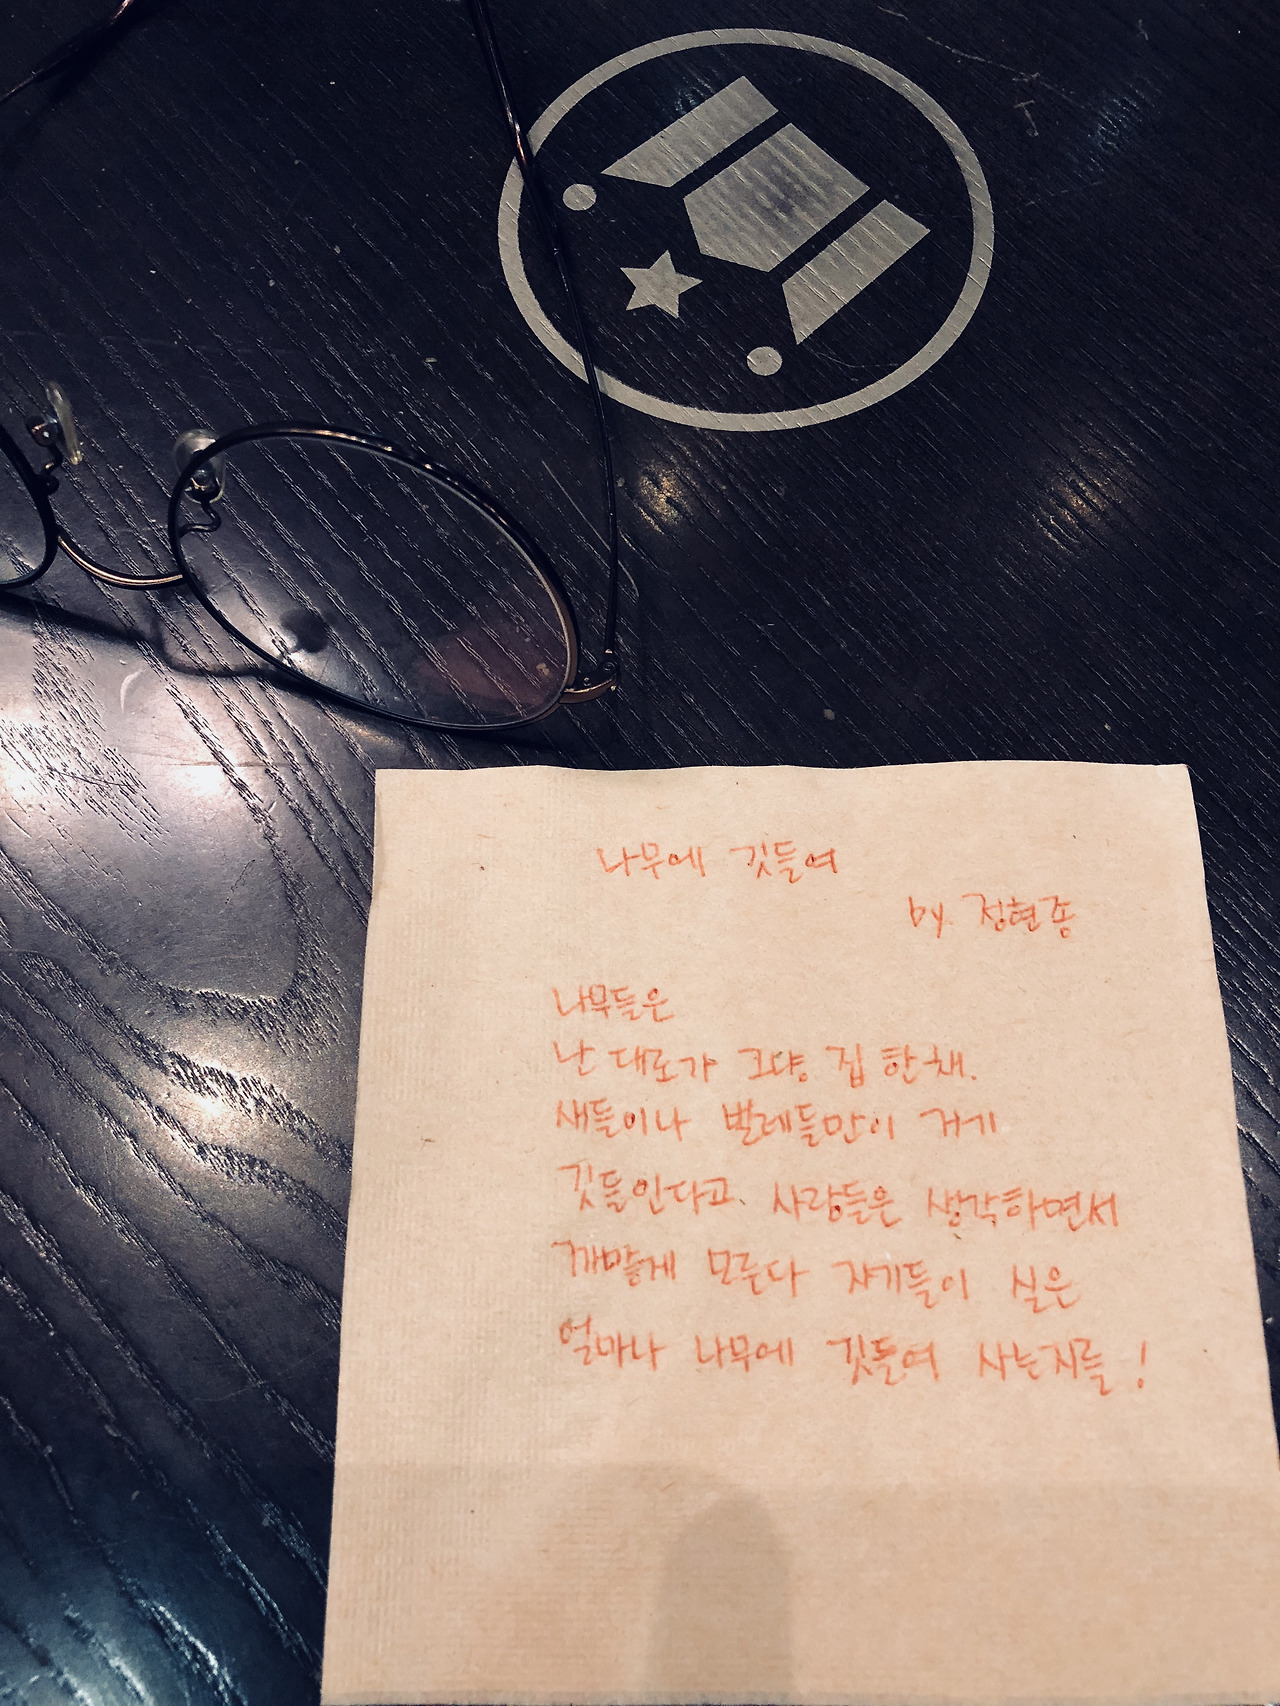 나무에 깃들여
by 정현종
나무들은
난 대로가 그냥 집 한 채.
새들이나 벌레들만이 거기
깃들인다고 사람들은 생각하면서
까맣게 모른다 자기들이 실은
얼마나 나무에 깃들여 사는지를!